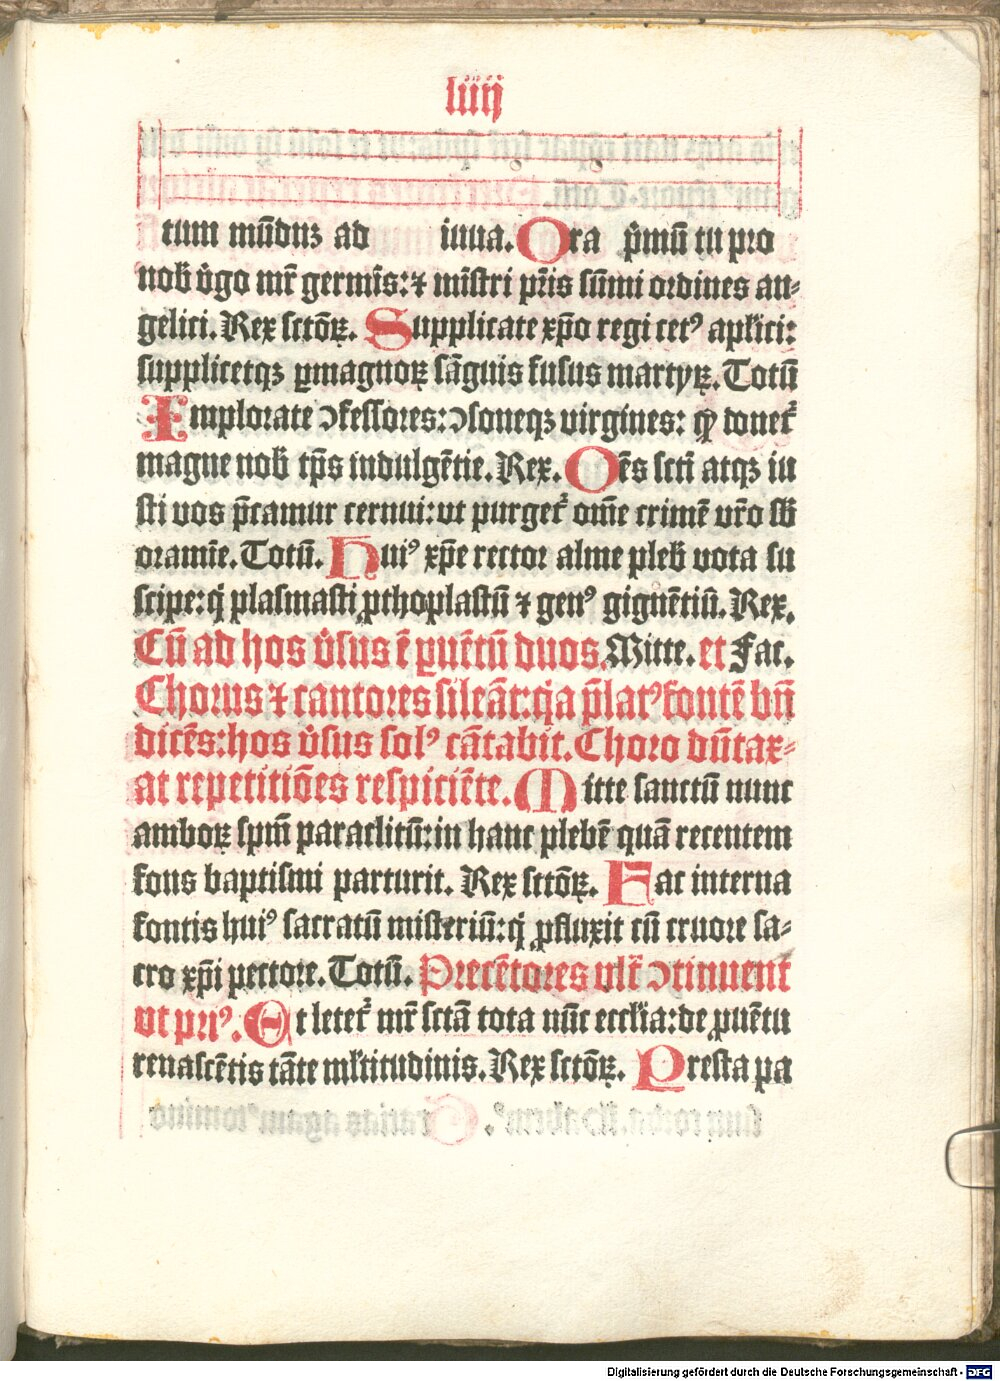 liiij
tum mūduʒ ad iuua. Ora p̄mū tu pro
nob̄ v̓go mr̄ germīs: ⁊ mīstri pr̄is sūmi ordines an⸗
gelici. Rex sctōꝝ. Supplicate xp̄o regi cetꝰ apl̄ici:
supplicetqʒ ꝑmagnoꝝ sāguis fusus martyꝝ. Totū
Implorate ↄfessores: ↄsoneqʒ virgines: ꝙ donet᷑
magne nob̄ tp̄s indulgētie. Rex. Oēs scti atqʒ iu
sti vos p̄camur cernui: vt purget᷑ om̄e crimē vr̄o sb̄
oramīe. Totū. Huiꝰ xp̄e rector alme pleb̄ vota su
scipe: q̇ plasmasti ꝓthoplastū ⁊ genꝰ gignētiū. Rex.
Cū ad hos v̓sus ē ꝑuētū duos. Mitte. et Fac.
Chorus ⁊ cantores sileāt: q̇a p̄latꝰ fontē bn̄
dicēs: hos v̓sus solꝰ cātabit. Choro dūtax⸗
at repetitiōes respiciēte. Mitte sanctū nunc
amboꝝ spm̄ paraclitū: in hanc plebē quā recentem
fons baptismi parturit. Rex sctōꝝ. Fac interna
fontis huiꝰ sacratū misteriū: q̇ ꝓfluxit cū cruore sa⸗
cro xp̄i pectore. Totū. Precētores vl̄t ↄtinuent
vt priꝰ. Et letet᷑ mr̄ sctā tota nūc eccl̄ia: de ꝓuētu
renascētis tāte ml̄titudinis. Rex sctōꝝ. Presta pa
Digitalisierung gefördert durch die Deutsche Forschungsgemeinschaft - DFG